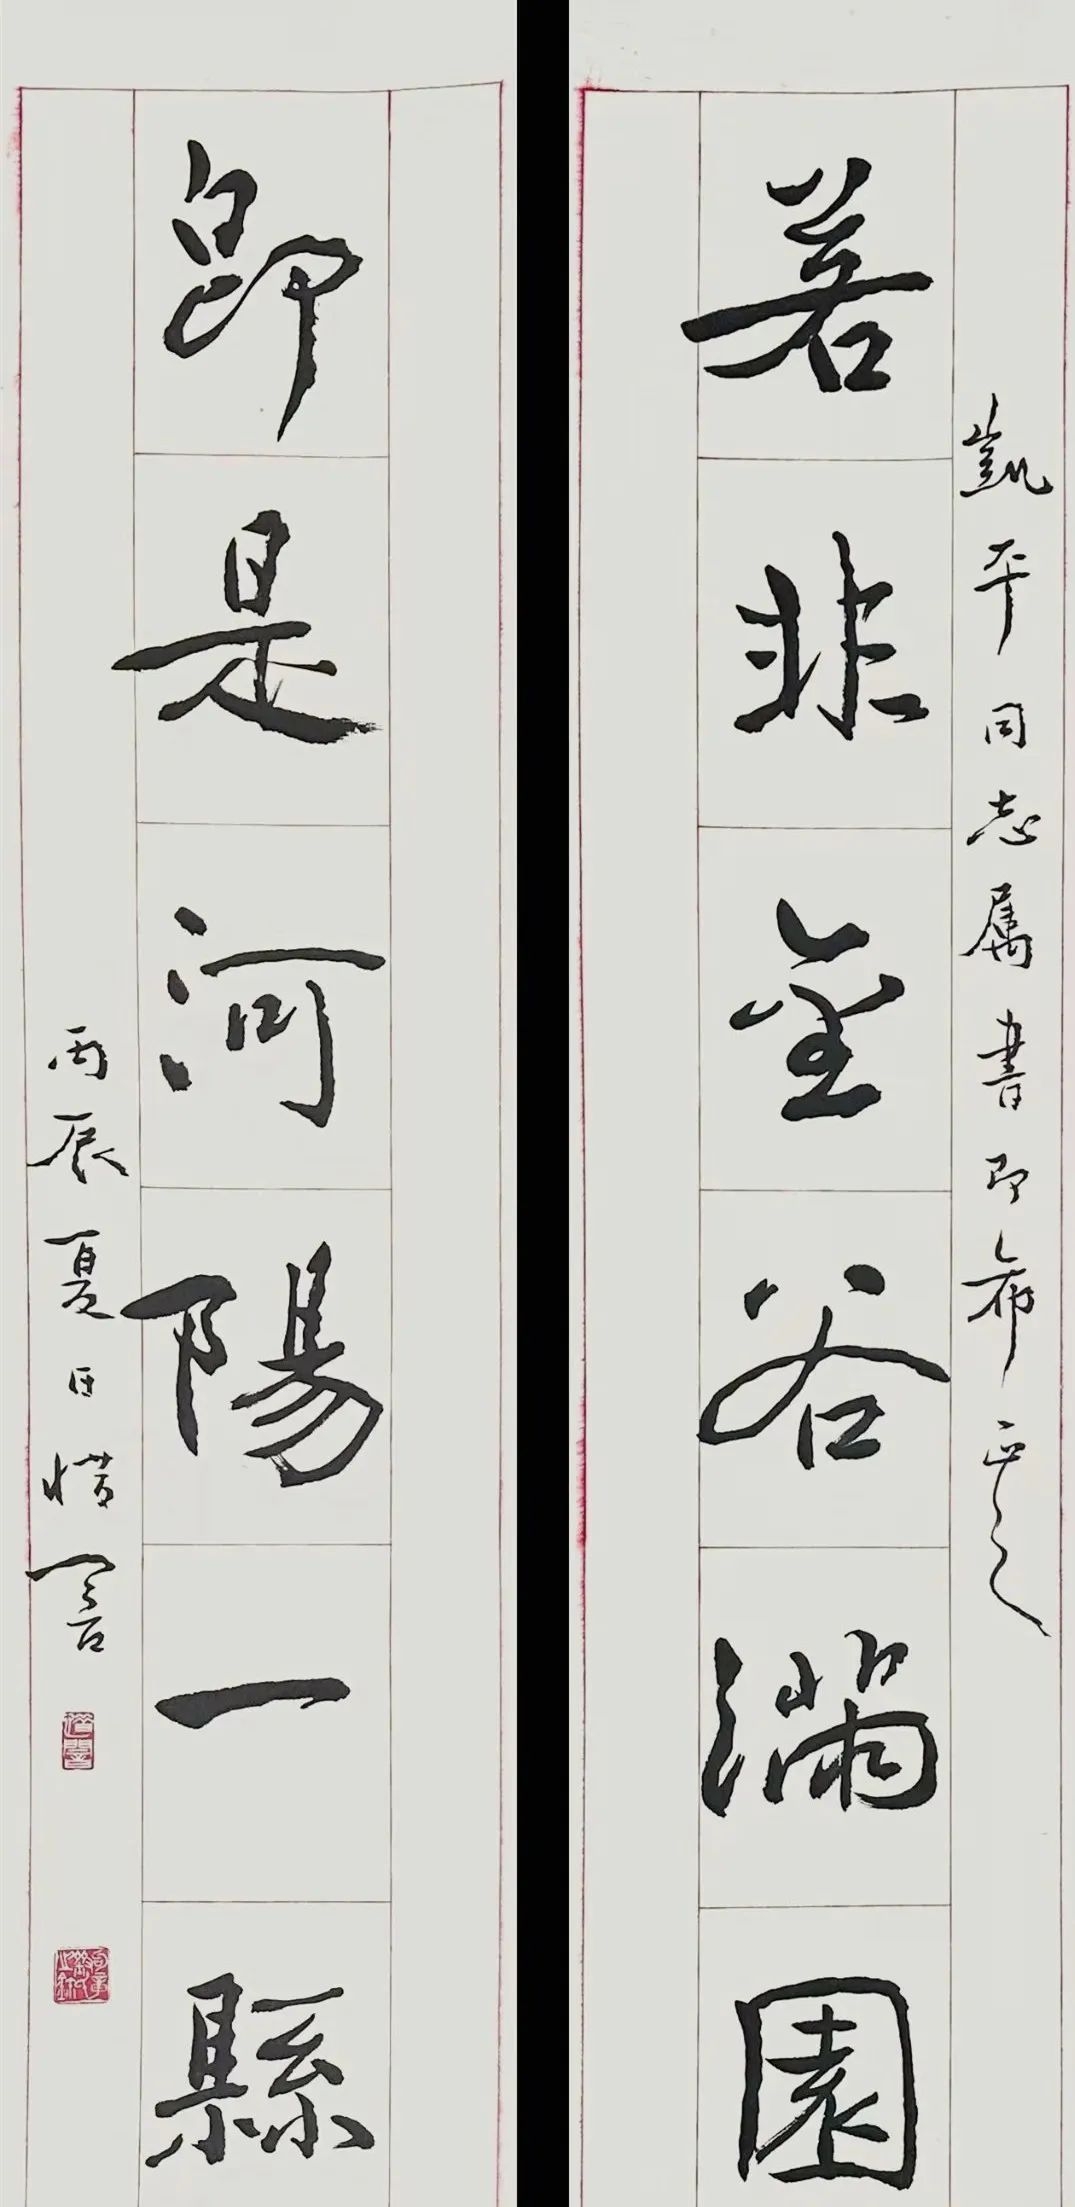 凱平同志属書即希正之
若非金谷滿園
即是河陽一縣
丙辰夏日惜言